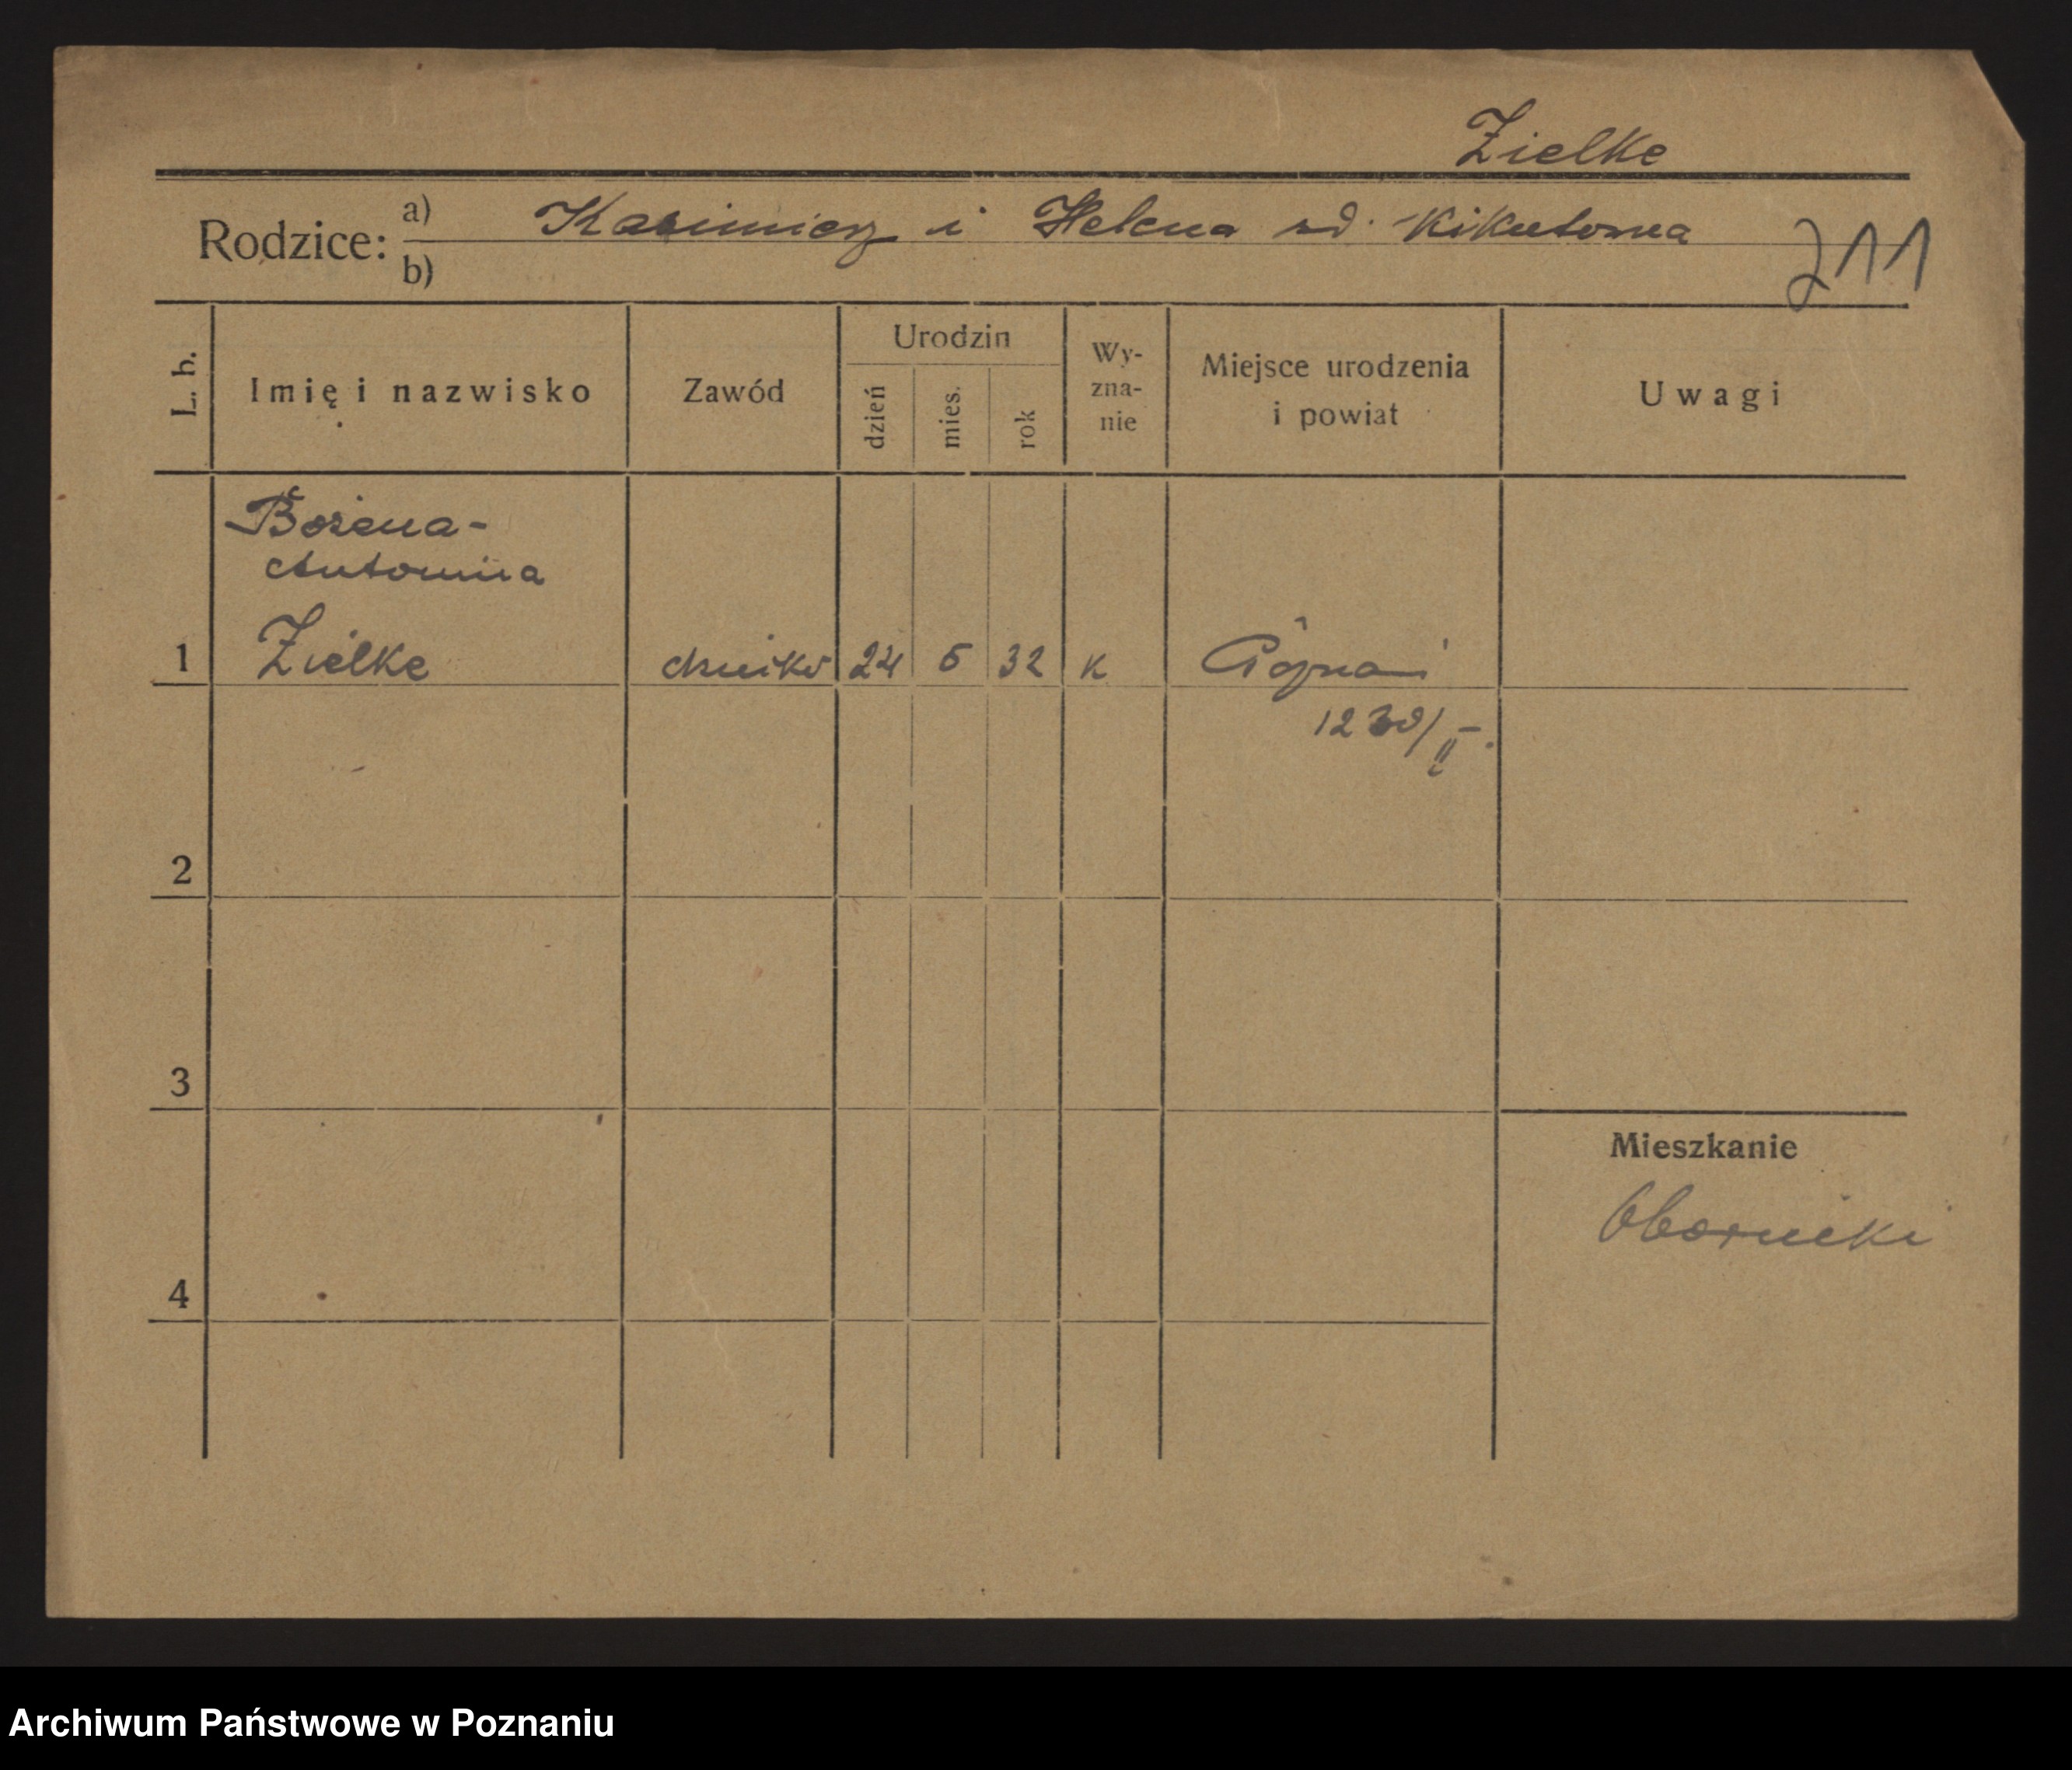 Zielke
Rodzice: a) Kazimierz i Helena zd. Kikutowna
b)
211
L. b.
Imię i nazwisko
Zawód
Urodzin
dzień
mies.
rok
Wy-
zna-
nie
Miejsce urodzenia
i powiat
Uwagi
Bożena-
Antonina
1 Zielke 24 5 32 K Poznań
2
3
Mieszkanie
Oborniki
4
Archiwum Państwowe w Poznaniu